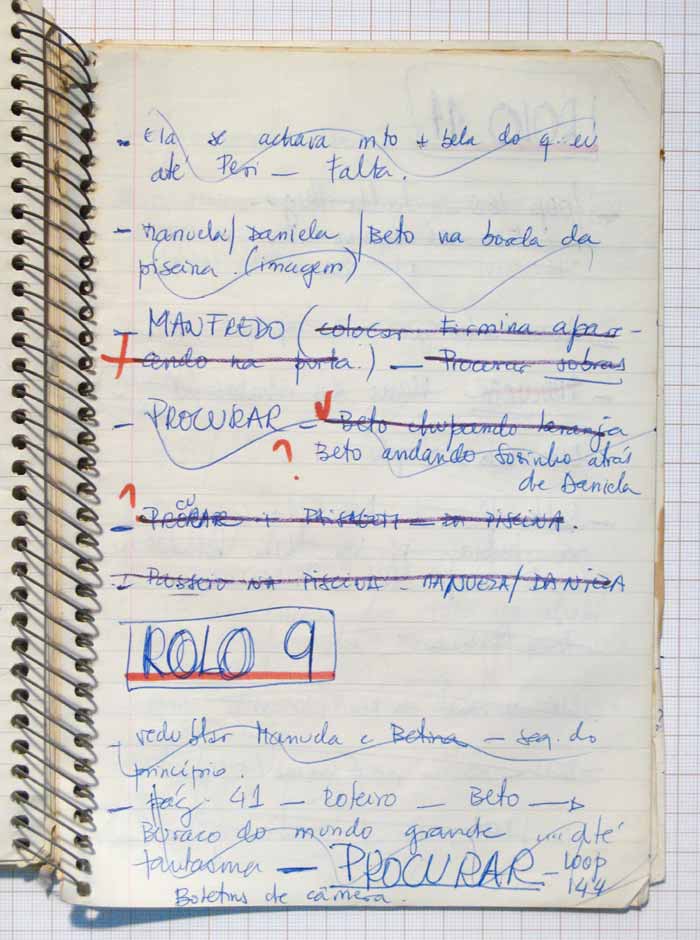 - Ela se achava mto + bela do q. eu
até Peri — Falta.
- Manuela/ Daniela /Beto na borda da
piscina. (imagem)
- MANFREDO (colocar Firmina apare-
cendo na porta.) — Procurar sobras
- PROCURAR — Beto chupando laranja
? Beto andando sozinho atrás
de Daniela
?
- PROCURAR + PAISAGEM — DA PISCINA.
- Passeio NA PISCINA - MANUELA/ DANIELA
ROLO 9
- redublar Manuela e Betina — seq. do
princípio.
- Pág. 41 — Roteiro — Beto →
Buraco do mundo grande ... até
fantasma — PROCURAR — Loop
144
Boletins de câmera.